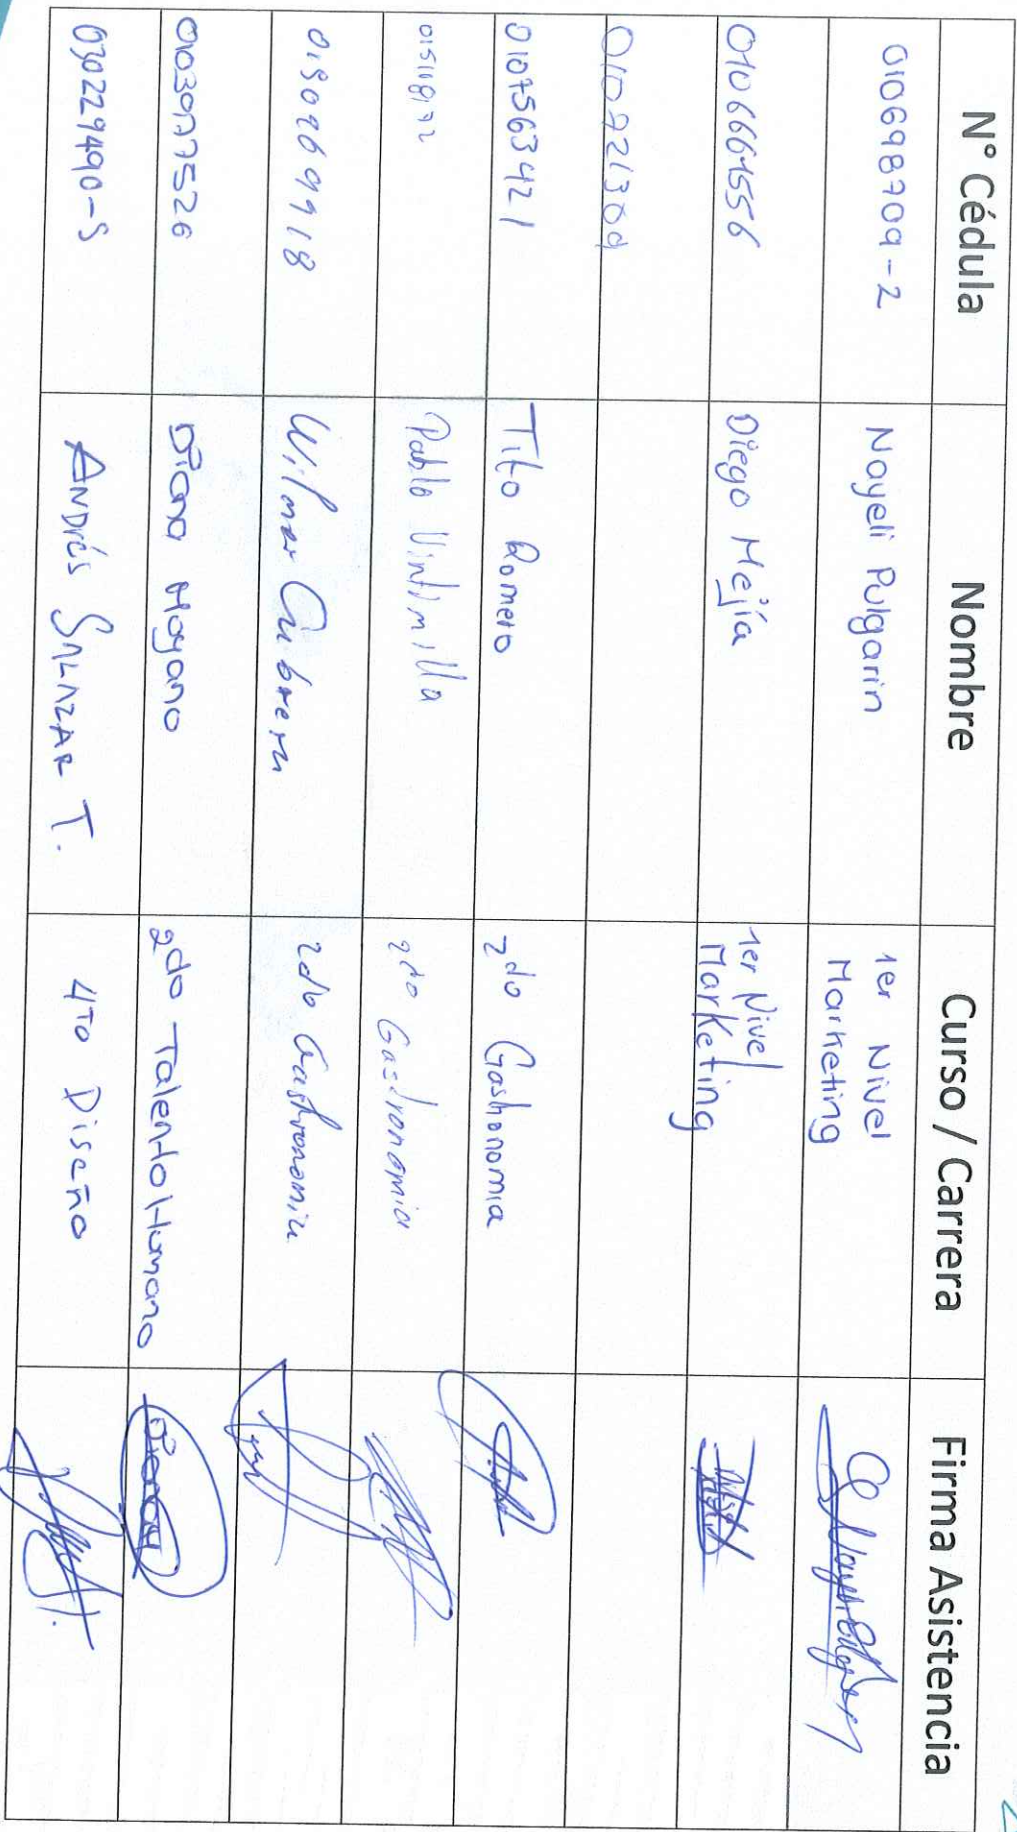 N° Cédula Nombre Curso / Carrera Firma Asistencia
010698709-2 Nayeli Pulgarin 1er Nivel
Marketing
0106661556 Diego Mejía 1er Nivel
Marketing
0107921309
0107563421 Tito Romero 2do Gastronomia
Pablo Vintimilla 2do Gastronomia
Wilmer Cabrera 2do Gastronomia
Diana Moyano 2do Talento Humano
030229490-5 Andrés SALAZAR T. 4TO Diseño